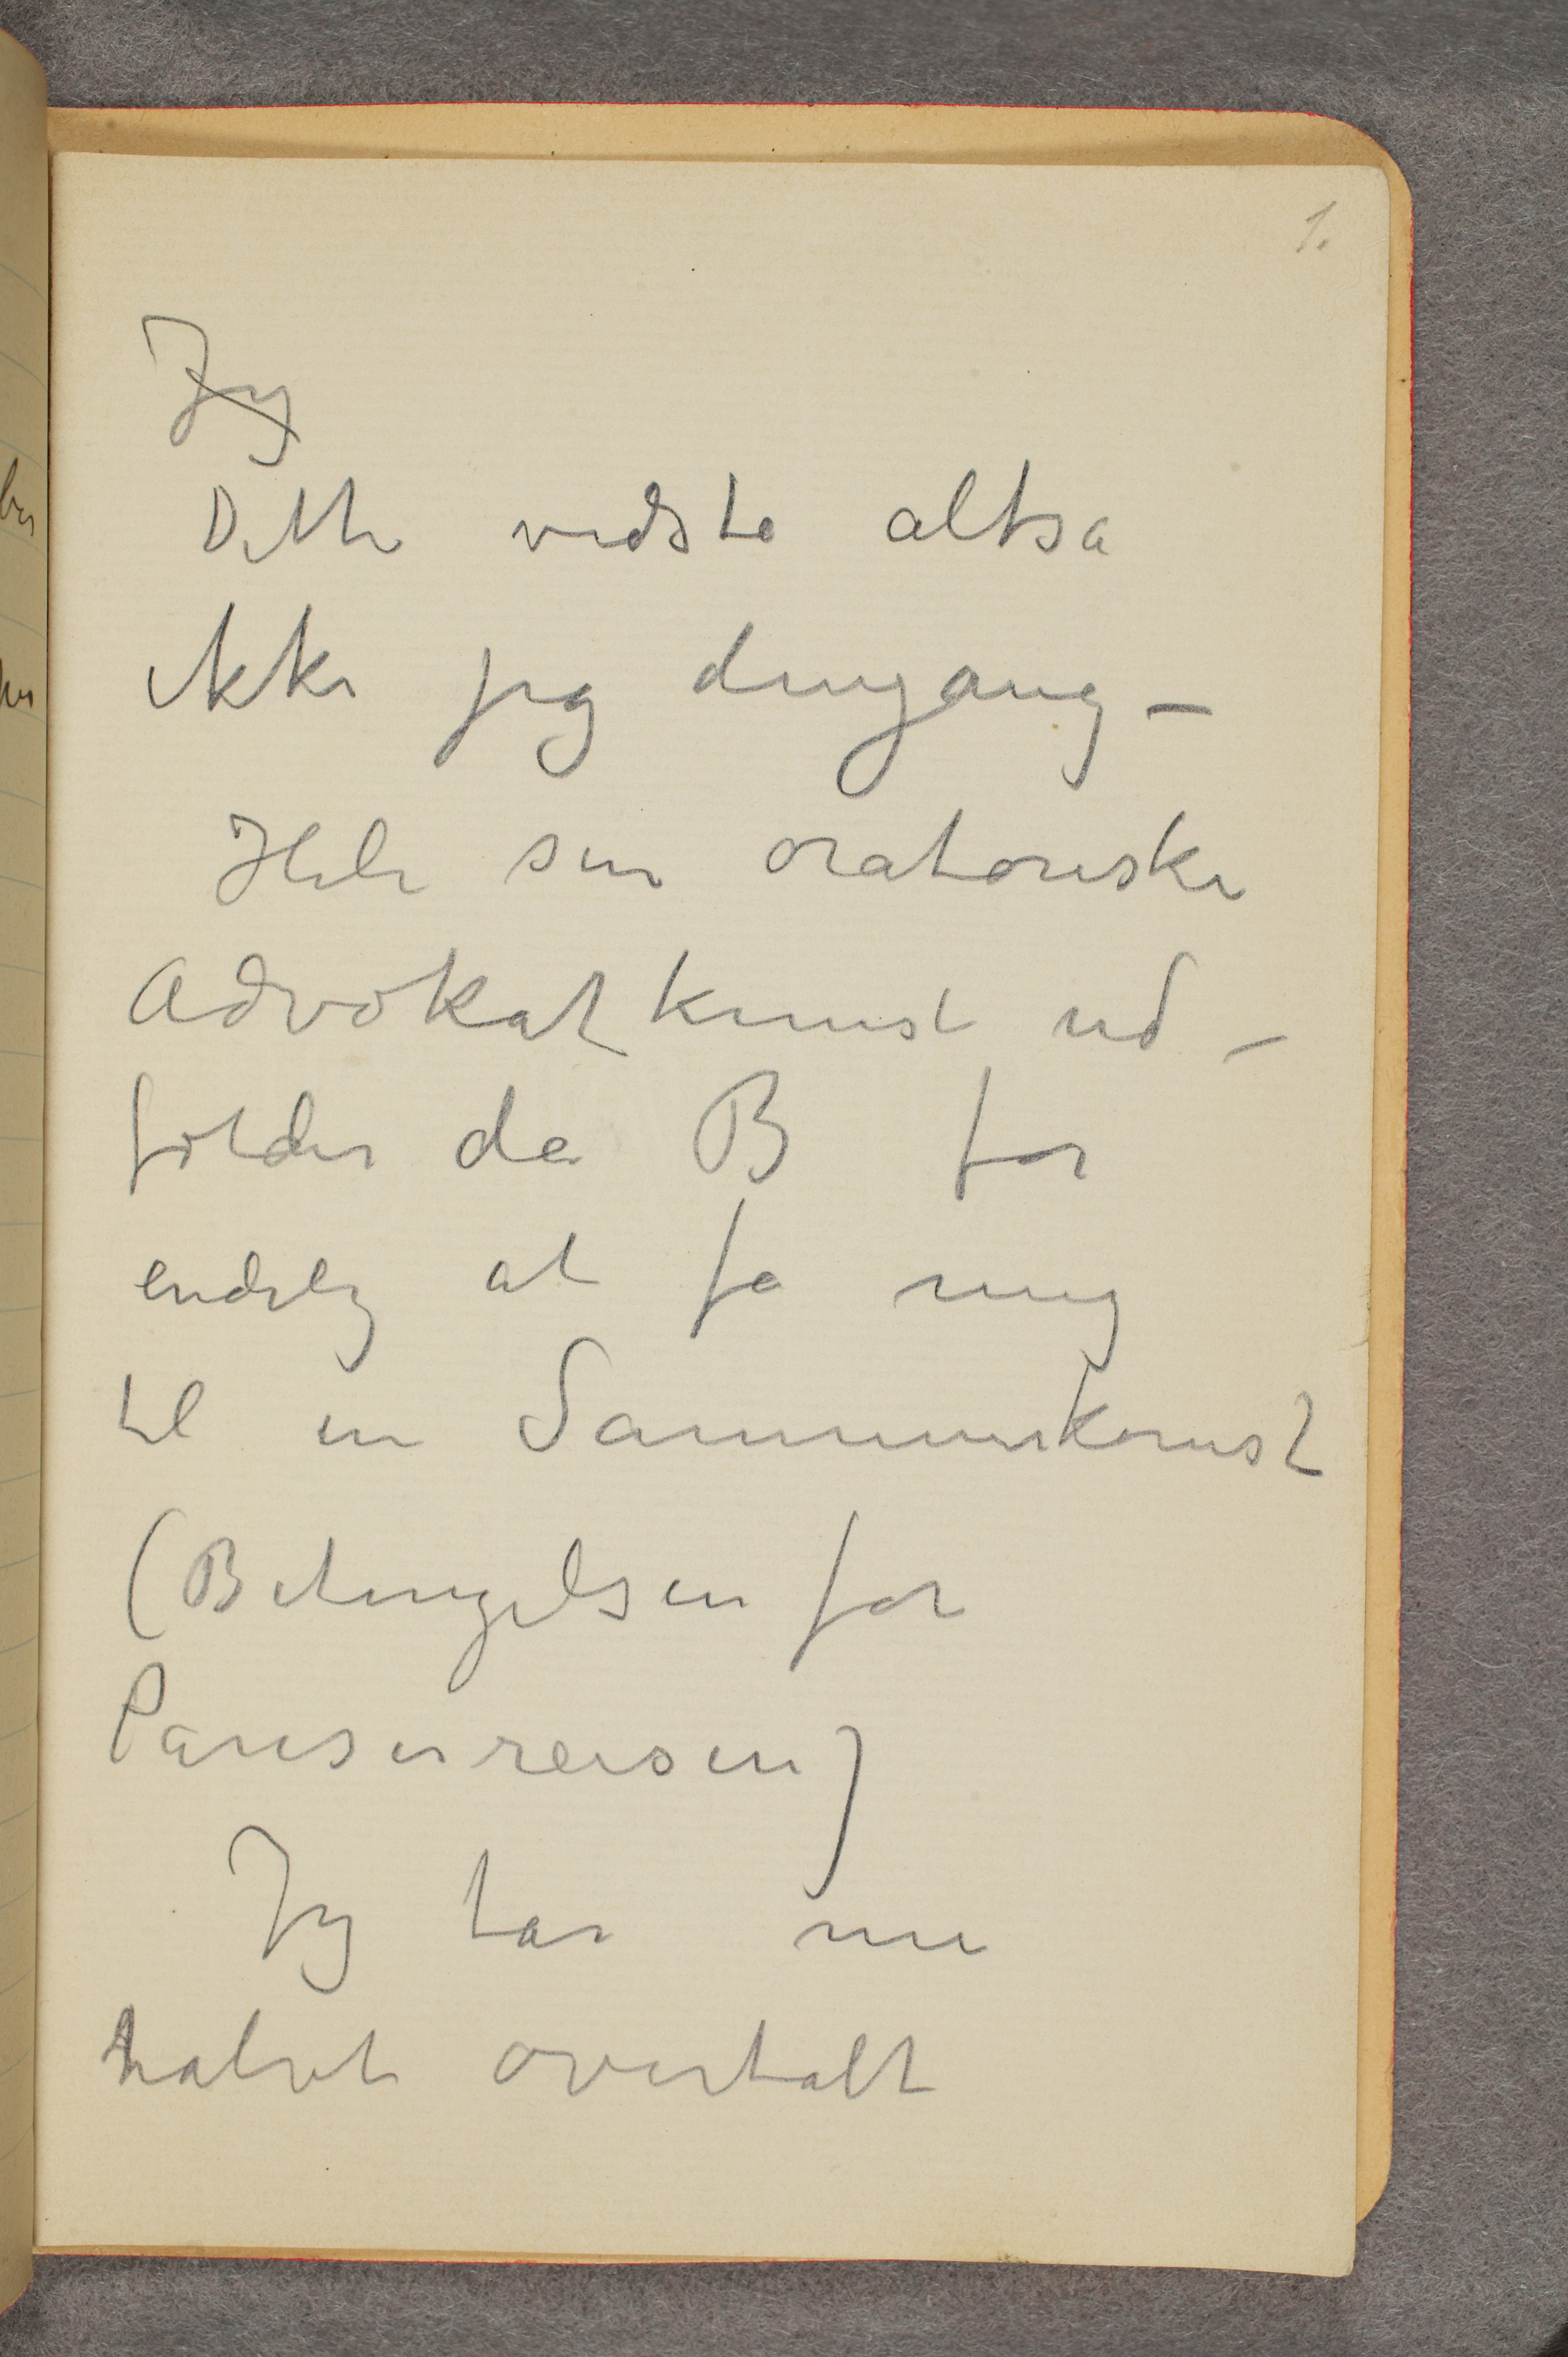 1.
Jeg
Dette vidste altsa
ikke jeg dengang –
Hele sin oratoriske
Advokatkunst ud-
folder da B for
endelig at fa mig
til en Sammenkomst
(Betingelsen for
Pariserreisen)
Jeg tar nu
halvt overtalt